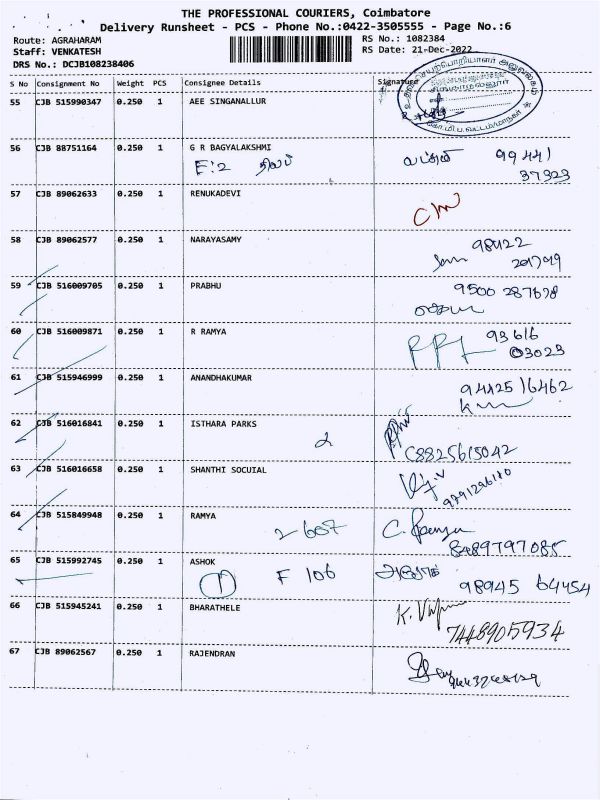 THE PROFESSIONAL COURIERS, Coimbatore
Delivery Runsheet - PCS - Phone No.:0422-3505555 - Page No.:6
Route: AGRAHARAM
RS No.: 1082384
Staff: VENKATESH
RS Date: 21-Dec-2022
DRS No.: DCJB108238406
S No Consignment No Weight PCS Consignee Details Signature
55 CJB 515990347 0.250 1 AEE SINGANALLUR
56 CJB 88751164 0.250 1 G R BAGYALAKSHMI
F:2
99441
37323
57 CJB 89062633 0.250 1 RENUKADEVI
58 CJB 89062577 0.250 1 NARAYASAMY
98422
59 CJB 516009705 0.250 1 PRABHU
9500 287678
60 CJB 516009871 0.250 1 R RAMYA
93616
03023
61 CJB 515946999 0.250 1 ANANDHAKUMAR
94425 16462
62 CJB 516016841 0.250 1 ISTHARA PARKS
2
8825615042
63 CJB 516016658 0.250 1 SHANTHI SOCUIAL
9791296180
64 CJB 515849948 0.250 1 RAMYA
2-607
8489797085
65 CJB 515992745 0.250 1 ASHOK
1 F 106
98945 64454
66 CJB 515945241 0.250 1 BHARATHELE
7448905934
67 CJB 89062567 0.250 1 RAJENDRAN